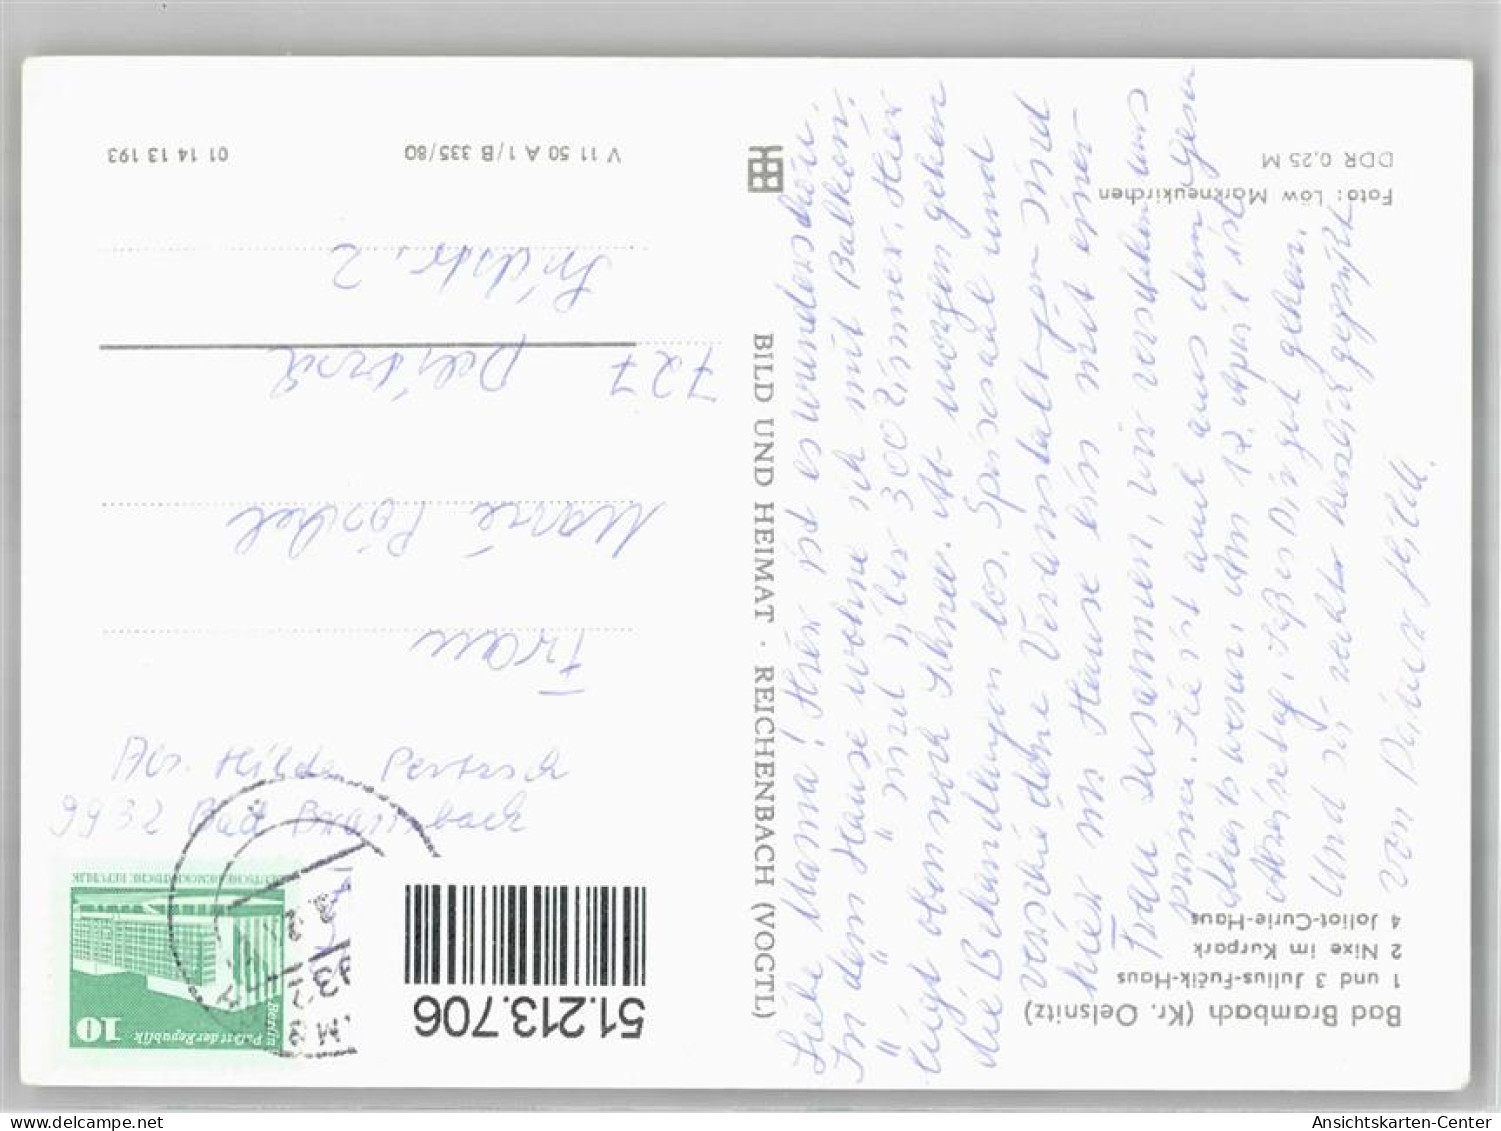 Bad Brambach (Kr. Oelsnitz)
1 und 3 Julius-Fučík-Haus
2 Nixe im Kurpark
4 Joliot-Curie-Haus
Foto: Löw Markneukirchen
DDR 0,25 M
BILD UND HEIMAT · REICHENBACH (VOGTL)
V 11 50 A 1/B 335/80
01 14 13 193
Liebe Mama! Hier ist es wunderschön.
In dem Hause wohne ich mit Balkon.
" " sind über 300 Zimmer. Hier
liegt oben noch Schnee. Ab morgen gehen
die Behandlungen los. Speisesaal und
verschiedene Veranstaltungen sind
hier im Hause bin mit einer
Frau zusammen, wir verstehen uns
prima. Sie ist auch aus dem
Am 17. April ist
Abreisetag. Laß es Dir gut gehen.
Und sei recht herzlich gegrüßt
von Deiner Hilde.
Abs. Hilde
9932 Bad Brambach
Frau
Marie
727 Delitzsch
2
10
Berlin
Palast der Republik
DEUTSCHE DEMOKRATISCHE REPUBLIK
51.213.706
Ansichtskarten-Center
www.delcampe.net